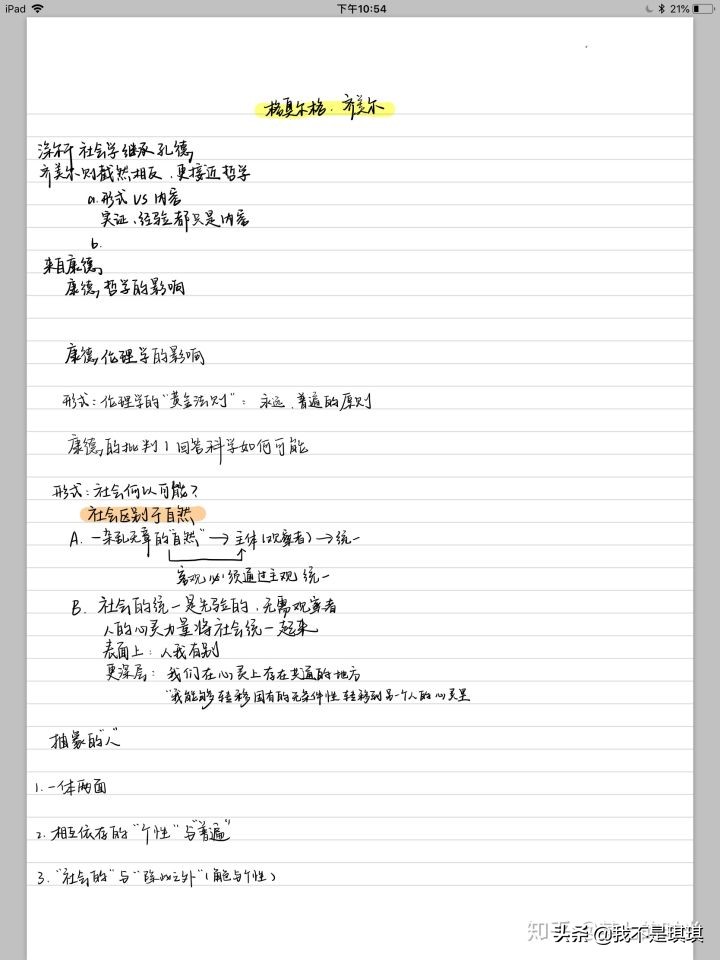 iPad
下午10:54
21%
格奥尔格·齐美尔
涂尔干 社会学继承孔德,
齐美尔则截然相反,更接近哲学
a.形式 VS 内容
实证、经验都只是内容
b.
来自康德,
康德,哲学的影响
康德,伦理学的影响
形式:伦理学的"黄金法则":永远、普遍的原则
康德,的批判1回答科学如何可能
形式:社会何以可能?
社会区别于自然
A. 一杂乱无章的"自然"→主体(观察者)→统一
客观必须通过主观 统一
B. 社会的统一是先验的,无需观察者
人的心灵力量将社会统一起来
表面上:人我有别
更深层:我们在心灵上存在共通的地方
"我能够转移固有的无条件性 转移到另一个人的心灵里
抽象的"人"
1.一体两面
2.相互依存的"个性"与"普遍"
3."社会的"与"除此之外"(角色与个性)
知乎
头条 @我不是琪琪